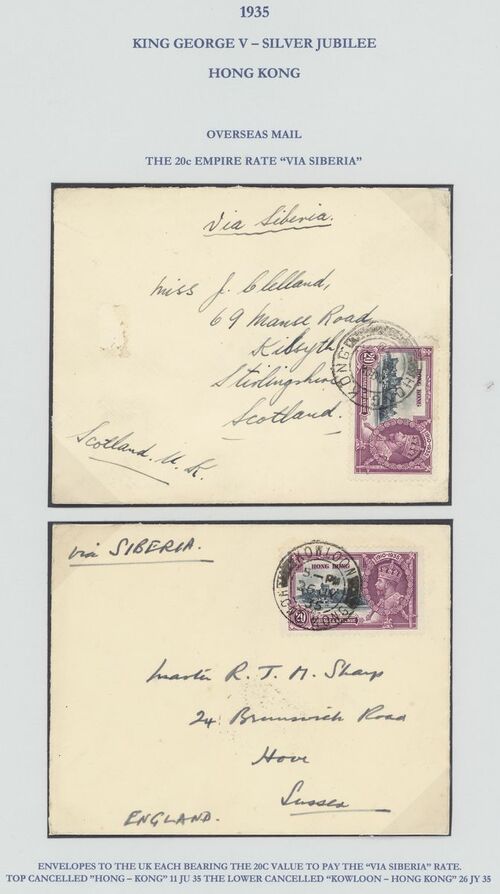 1935
KING GEORGE V – SILVER JUBILEE
HONG KONG
OVERSEAS MAIL
THE 20c EMPIRE RATE "VIA SIBERIA"
Via Siberia.
Miss J. Clelland,
69 Manse Road
Kilsyth
Stirlingshire
Scotland.
Scotland. U.K.
HONG KONG
20
HONG KONG
via SIBERIA.
KOWLOON
5 – PM
26 JY
35
HONG KONG
HONG KONG
20
Master R. T. M. Sharp
24 Brunswick Road
Hove
Sussex
ENGLAND.
ENVELOPES TO THE UK EACH BEARING THE 20C VALUE TO PAY THE "VIA SIBERIA" RATE.
TOP CANCELLED "HONG – KONG" 11 JU 35 THE LOWER CANCELLED "KOWLOON – HONG KONG" 26 JY 35